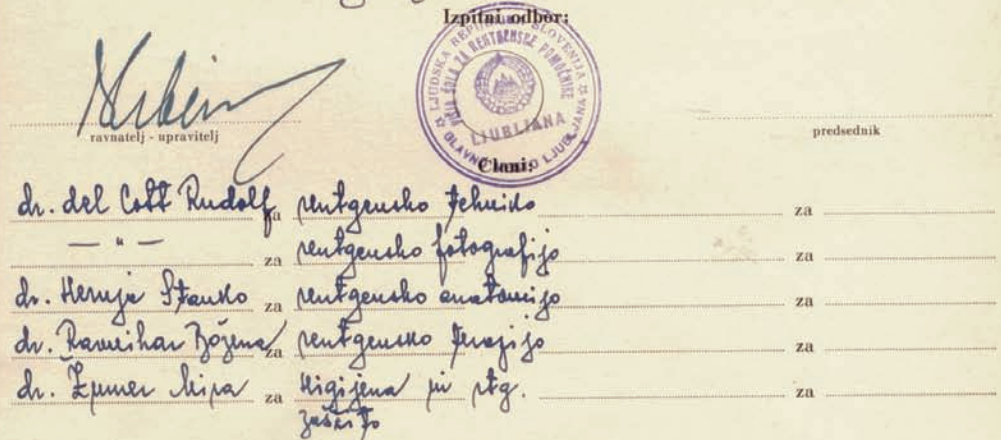 Izpitni odbor:
LJUDSKA REPUBLIKA SLOVENIJA
ŠOLA ZA RENTGENSKE POMOČNIKE
LJUBLJANA
GLAVNO MESTO LJUBLJANA
ravnatelj - upravitelj
predsednik
Člani:
dr. del Cott Rudolf za rentgensko tehniko za
— " — za rentgensko fotografijo za
dr. Hernja Stanko za rentgensko anatomijo za
dr. Božena za rentgensko terapijo za
dr. Žumer Mira za Higijena pri rtg.
zaščito za